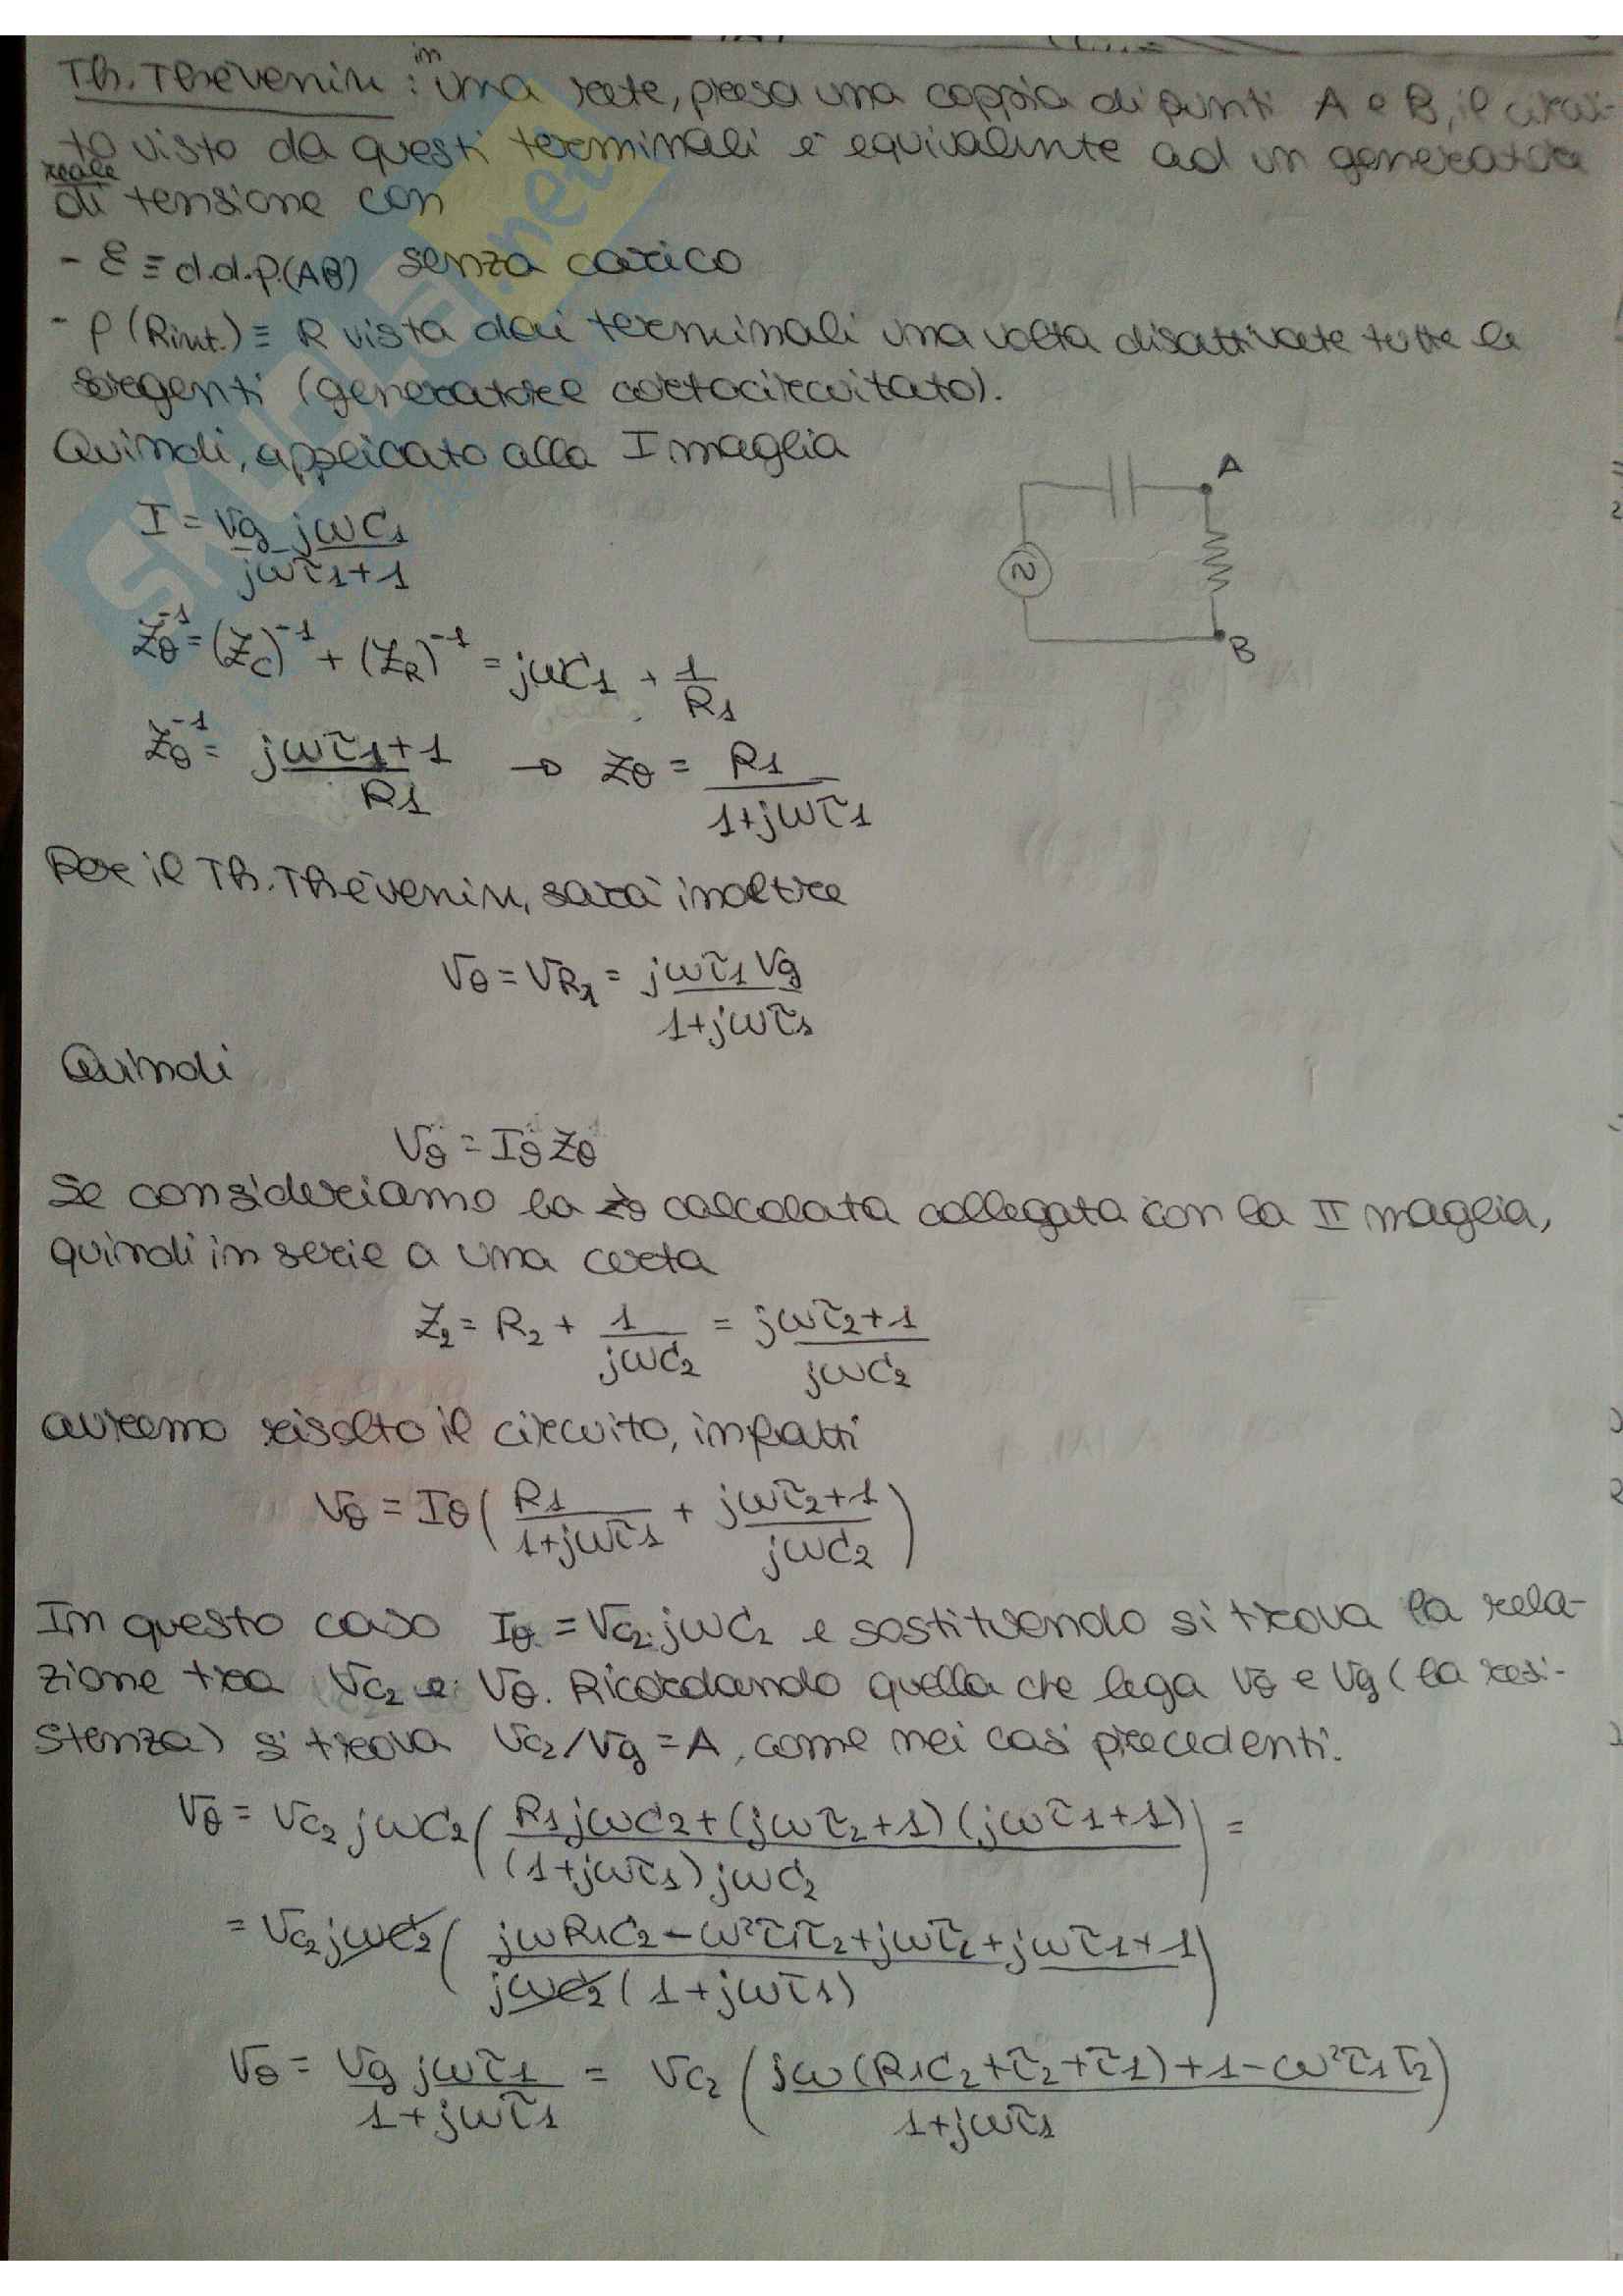 Th. Thévenin : in una rete, presa una coppia di punti A e B, il circui-
to visto da questi terminali è equivalente ad un generatore
reale
di tensione con
- Ɛ ≡ d.d.p.(AB) senza carico
- ρ (Rint.) ≡ R vista dai terminali una volta disattivate tutte le
sorgenti (generatore cortocircuitato).
Quindi, applicato alla I maglia
A
I = Vg jωC1 / (jωτ1+1)
B
Zθ⁻¹ = (Zc)⁻¹ + (ZR)⁻¹ = jωC1 + 1/R1
Zθ⁻¹ = (jωτ1+1)/R1 → Zθ = R1/(1+jωτ1)
Per il Th. Thévenin, sarà inoltre
Vθ = VR1 = jωτ1 Vg / (1+jωτ1)
Quindi
Vθ = Iθ Zθ
Se consideriamo la Zθ calcolata collegata con la II maglia,
quindi in serie a una certa
Z2 = R2 + 1/(jωC2) = (jωτ2+1)/(jωC2)
avremo risolto il circuito, infatti
Vθ = Iθ ( R1/(1+jωτ1) + (jωτ2+1)/(jωC2) )
In questo caso Iθ = Vc2 jωC2 e sostituendo si trova la rela-
zione tra Vc2 e Vθ. Ricordando quella che lega Vθ e Vg (la resi-
stenza) si trova Vc2/Vg = A, come nei casi precedenti.
Vθ = Vc2 jωC2 ( (R1jωC2+(jωτ2+1)(jωτ1+1)) / ((1+jωτ1)jωC2) ) =
= Vc2 jωC2 ( (jωR1C2-ω²τ1τ2+jωτ2+jωτ1+1) / (jωC2(1+jωτ1)) )
Vθ = Vg jωτ1 / (1+jωτ1) = Vc2 ( (jω(R1C2+τ2+τ1)+1-ω²τ1τ2) / (1+jωτ1) )